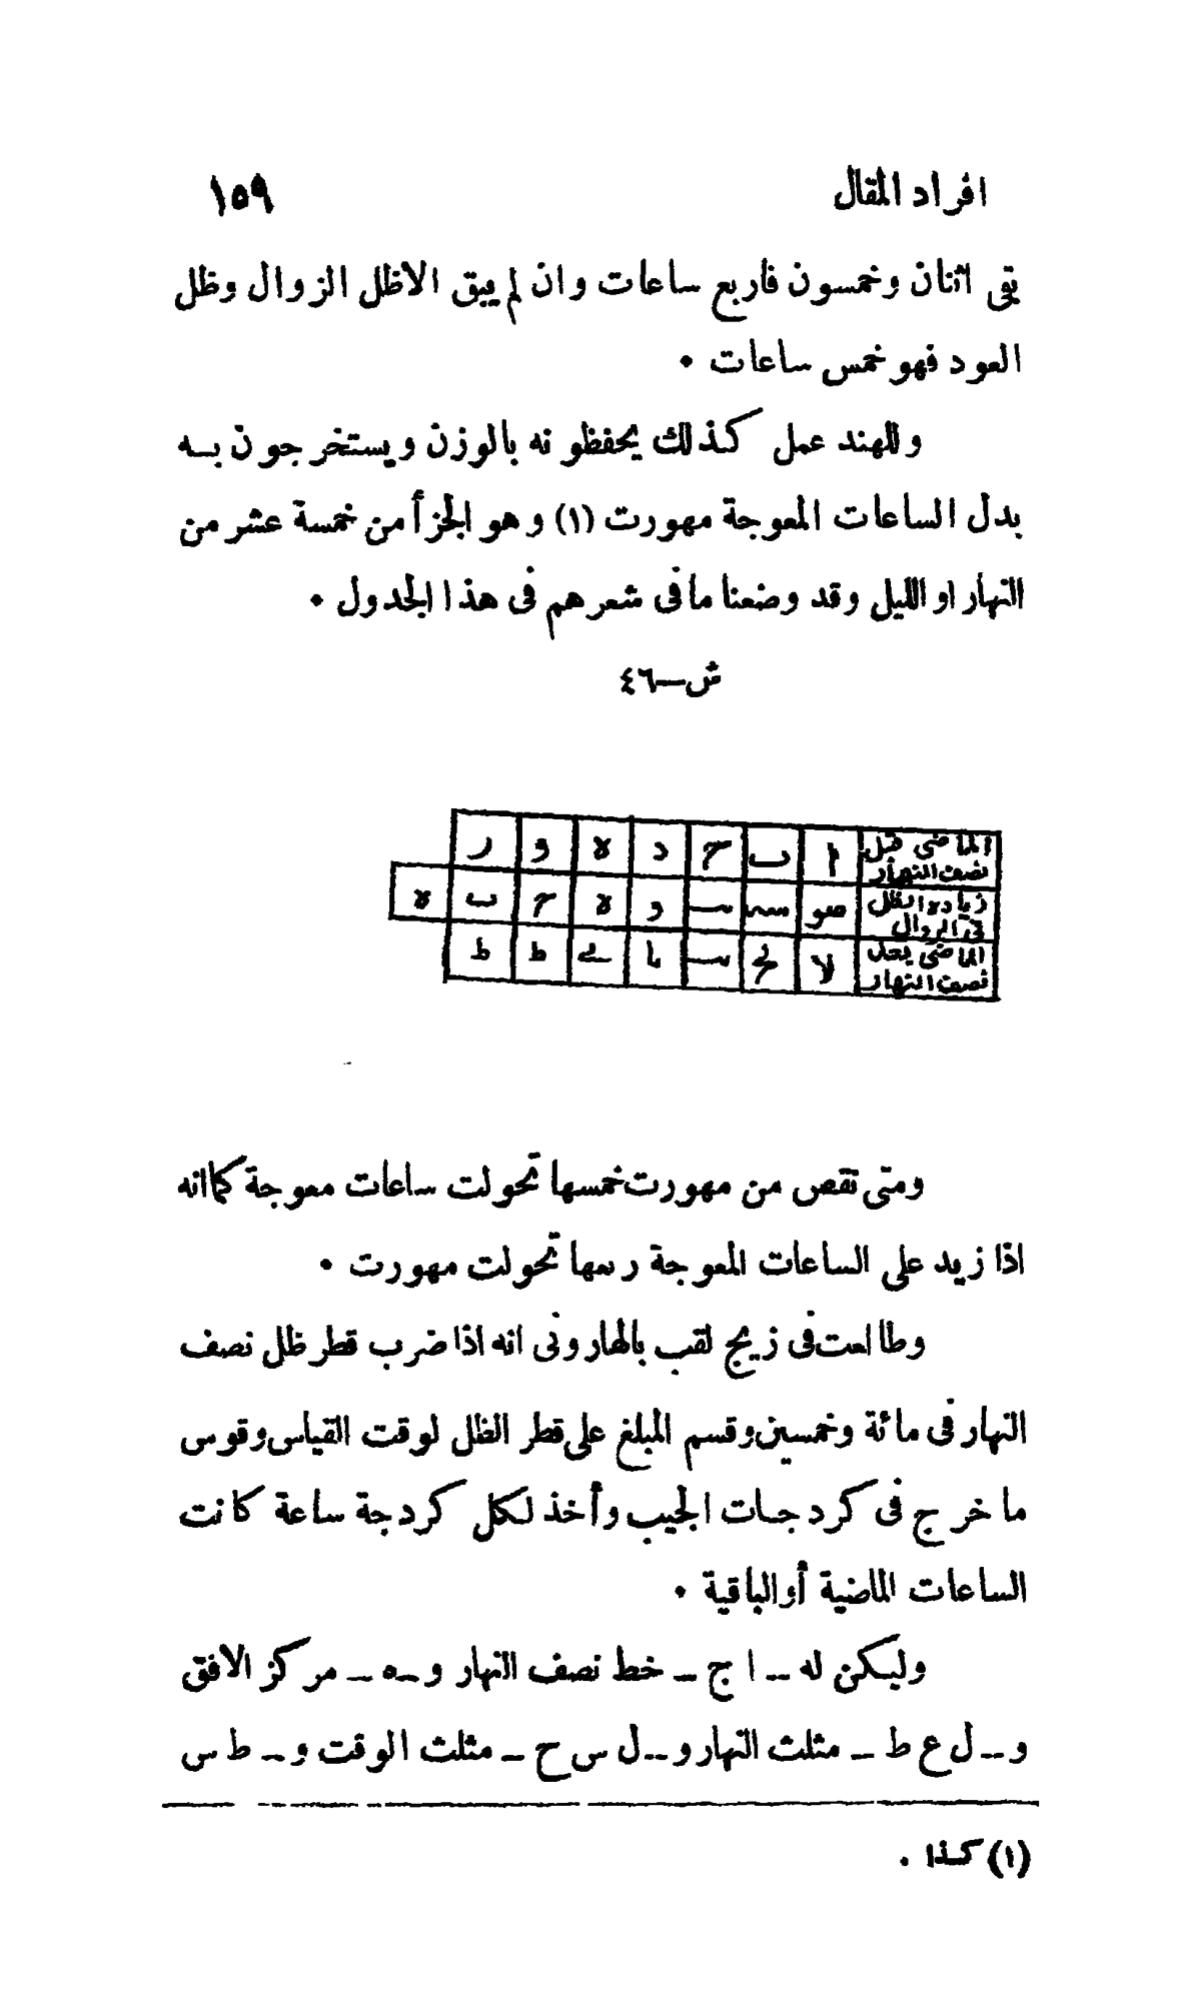 افراد المقال ١٥٩
بقى اثنان وخمسون فاربع ساعات وان لم يبق الاظل الزوال وظل
العود فهو خمس ساعات ٠
وللهند عمل كذلك يحفظونه بالوزن ويستخرجون بـه
بدل الساعات المعوجة مهورت (١) وهو الجزأ من خمسة عشر من
النهار او الليل وقد وضعنا ما فى شعرهم فى هذا الجدول ٠
ش—٤٦
الماضى قبل نصف النهار ا ب ح د ه و ر
زيادة الظل فى الزوال صو و ه ح ب ه
الماضى بعد نصف النهار يا ط ط
ومتى نقص من مهورت خمسها تحولت ساعات معوجة كما انه
اذا زيد على الساعات المعوجة ربعها تحولت مهورت ٠
وطالعت فى زيج لقب بالهارونى انه اذا ضرب قطر ظل نصف
النهار فى مائة وخمسين وقسم المبلغ على قطر الظل لوقت القياس وقوس
ما خرج فى كردجات الجيب وأخذ لكل كردجة ساعة كانت
الساعات الماضية أو الباقية ٠
وليكن له ــ ا ج ــ خط نصف النهار و ــ ه ــ مركز الافق
و ــ ل ع ط ــ مثلث النهار و ــ ل س ح ــ مثلث الوقت و ــ ط س
(١) كـذا .